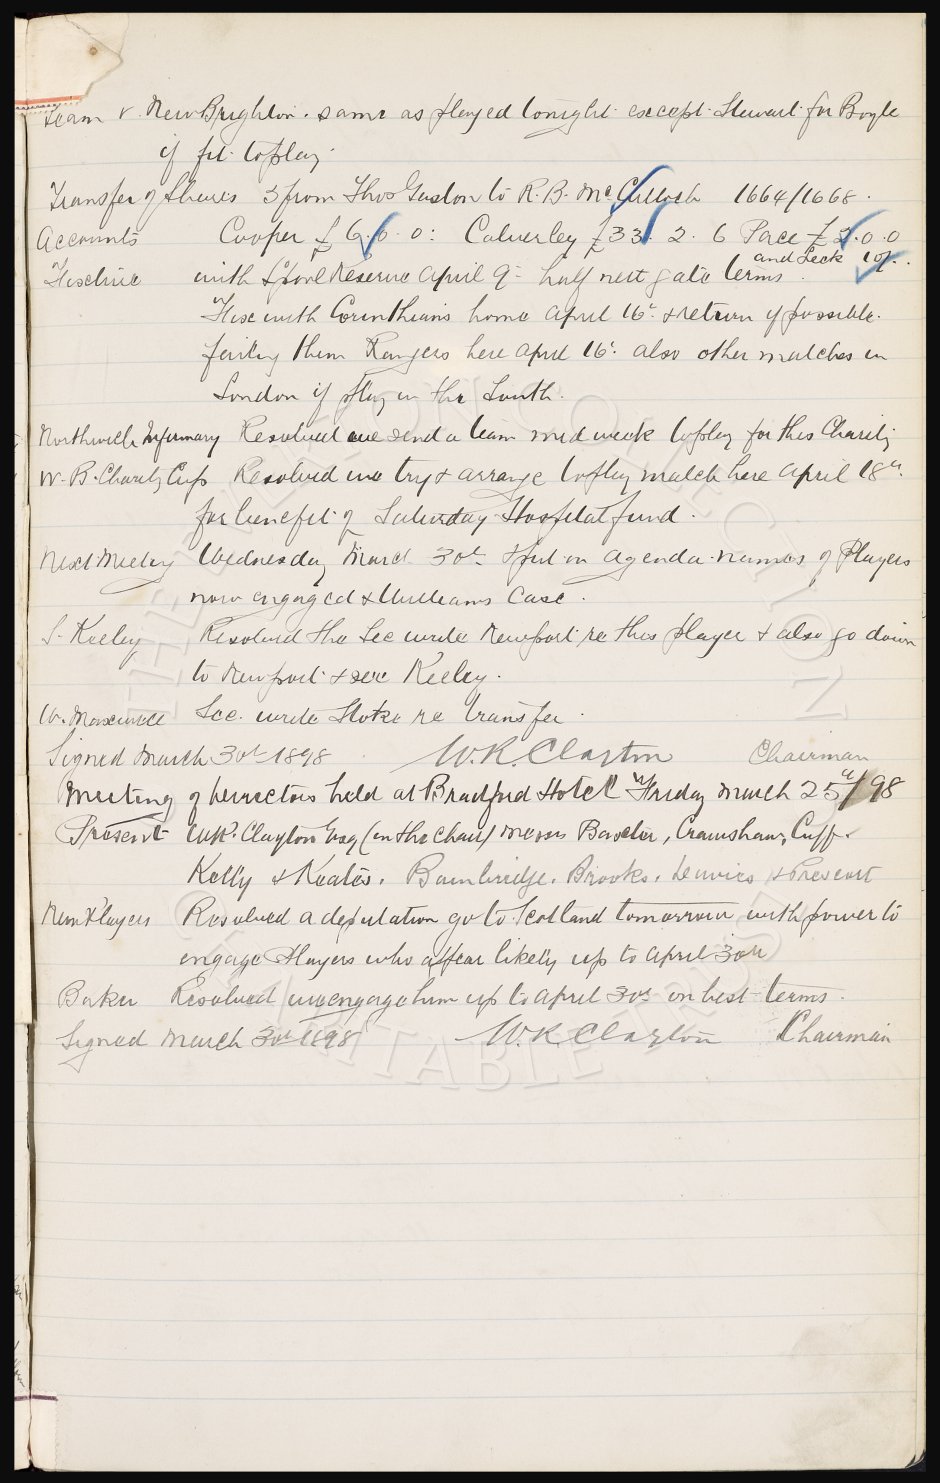 Team v. New Brighton. same as played tonight except Stewart for Boyle
if fit to play.
Transfer of Shares 3 from Thos Gaston to R.B. McCulloch 1664/1668.
Accounts Cooper £6.6.0: Calverley £33.2.6 Pace £2.0.0
and Leck 10/.
Fixture with L'pool Reserve April 9th half nett gate terms.
Fix with Corinthians home April 16th & return if possible.
failing them Rangers here April 16th also other matches in
London if play in the South.
Northwich Infirmary Resolved we send a team mid week to play for this Charity
W. B. Charity Cup Resolved we try & arrange to play match here April 18th.
for benefit of Saturday Hospital fund.
Next Meeting Wednesday March 30th & put on agenda names of Players
now engaged & Williams Case.
S. Keeley Resolved the Sec write Newport re this player & also go down
to Newport & see Keeley.
W. Maxwell Sec. write Stoke re transfer.
Signed March 30th 1898 W.R. Clayton Chairman
Meeting of Directors held at Bradford Hotel Friday March 25th/98
Present W.R. Clayton Esq (in the chair) Messrs Baxter, Crawshaw, Cuff.
Kelly & Keates. Bainbridge. Brooks. Davies & Prescott
New Players Resolved a deputation go to Scotland tomorrow with power to
engage Players who appear likely up to April 30th
Baker Resolved we engage him up to April 30th on best terms.
Signed March 30th 1898 W.R. Clayton Chairman
THE EVERTON COLLECTION
CHARITABLE TRUST